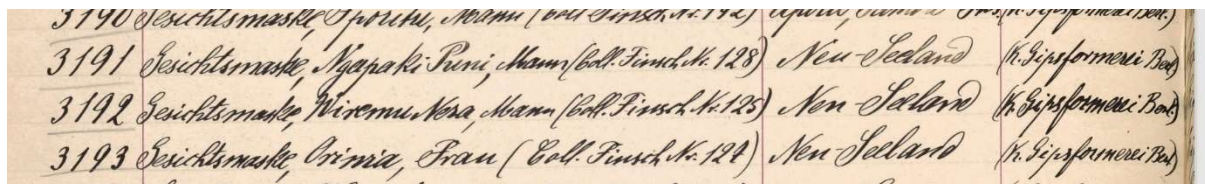 3190 Gesichtsmaske, Mann (Coll. Finsch Nr. 142)
3191 Gesichtsmaske, Ngapaki Puni, Mann (Coll. Finsch Nr. 128) Neu-Seeland (K. Gipsformerei Berl.)
3192 Gesichtsmaske, Wiremu Nera, Mann (Coll. Finsch Nr. 125) Neu-Seeland (K. Gipsformerei Berl.)
3193 Gesichtsmaske, Orinia, Frau (Coll. Finsch Nr. 127) Neu-Seeland (K. Gipsformerei Berl.)